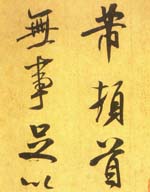 芾頓首
無事足以